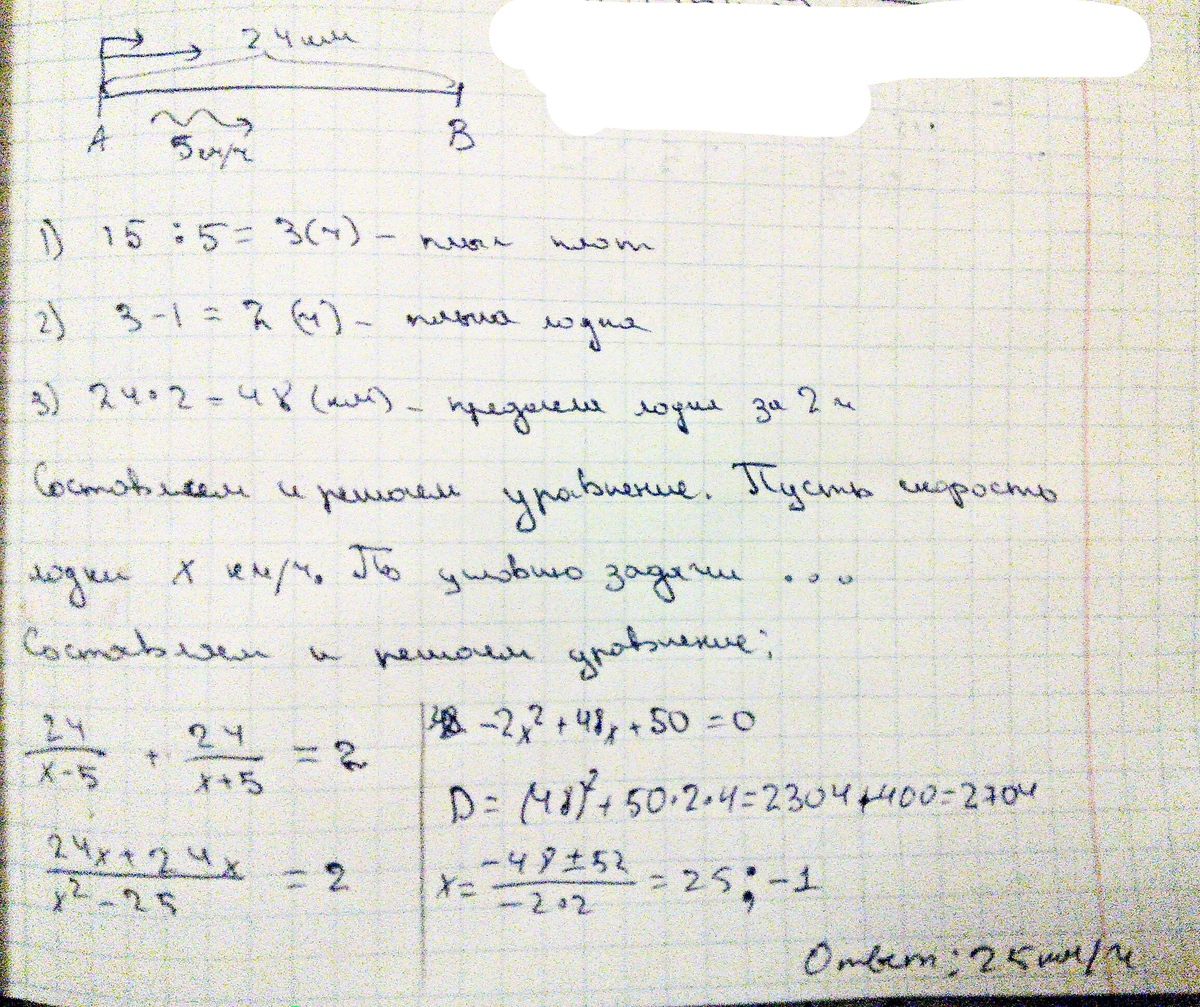 24 км
A 5 км/ч B
1) 15 : 5 = 3(ч) – плыл плот
2) 3 - 1 = 2 (ч) – плыла лодка
3) 24 • 2 = 48 (км) – лодка за 2 ч
Составляем и решаем уравнение. Пусть скорость
лодки x км/ч. По условию задачи ...
Составляем и решаем уравнение:
24/(x-5) + 24/(x+5) = 2
(24x + 24x)/(x² - 25) = 2
-2x² + 48x + 50 = 0
D = (48)² + 50·2·4 = 2304 + 400 = 2704
x = (-48 ± 52)/(-2·2) = 25 ; -1
Ответ: 25 км/ч